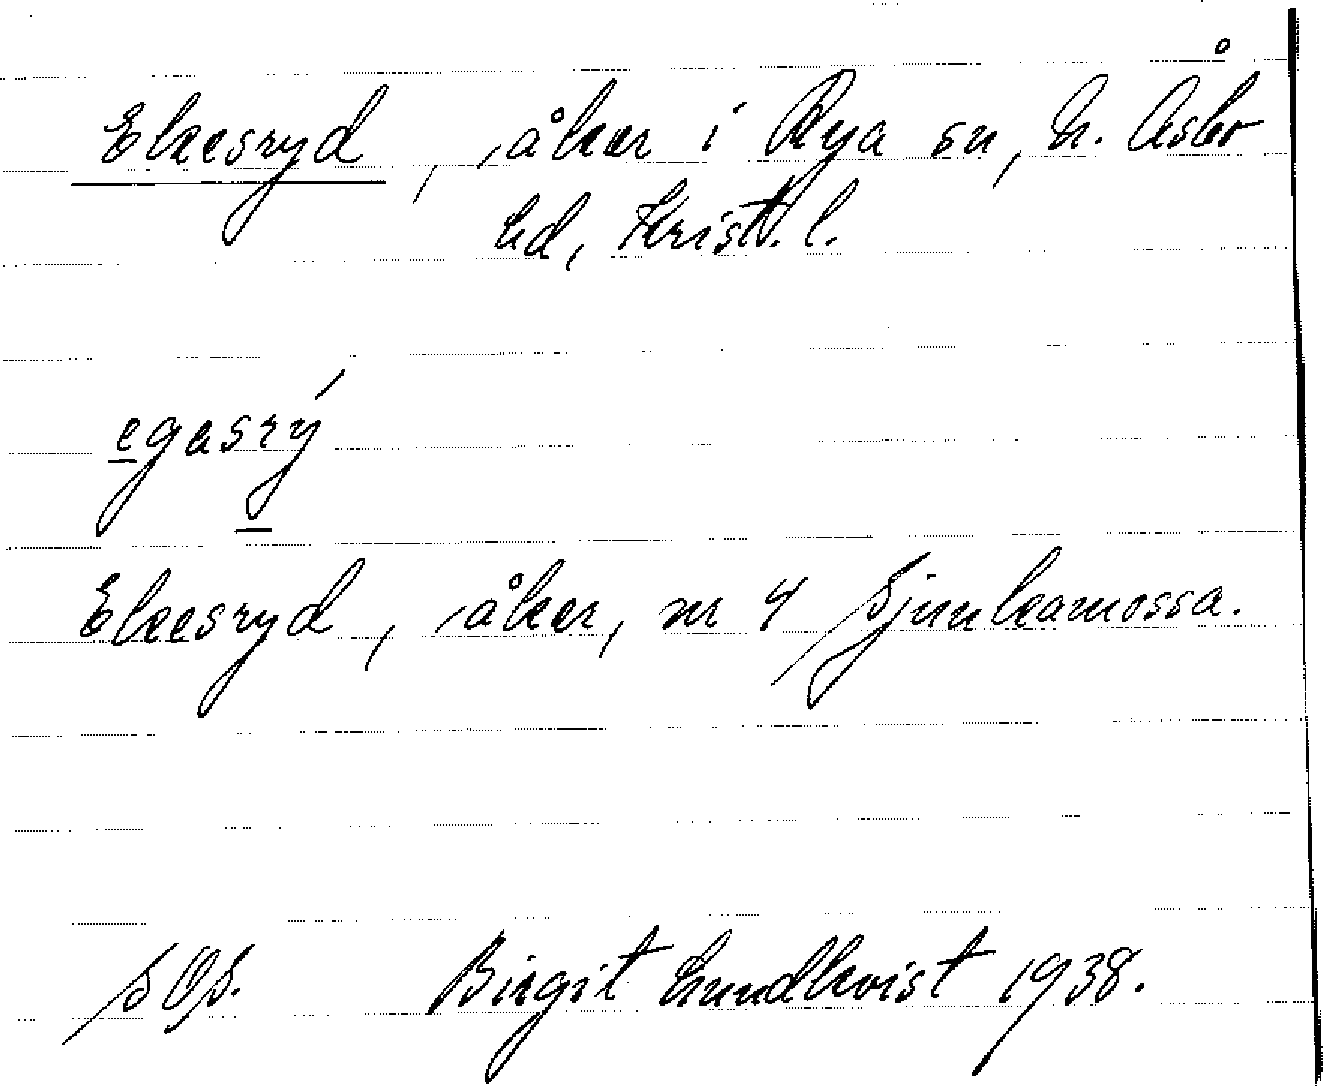 Ekesryd, åker i Rya sn, N. Åsbo
hd, Krist. l.
egasrý
Ekesryd, åker, nr 4 Sjunkamossa.
SOS. Birgit Lundkvist 1938.